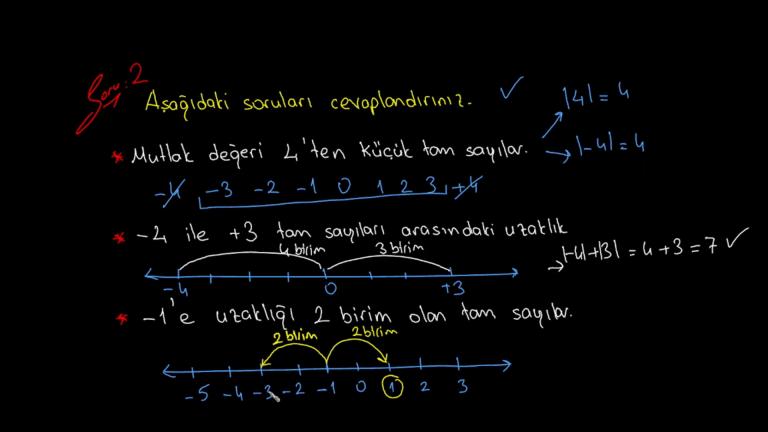 Soru: 2
Aşağıdaki soruları cevaplandırınız. ✓
|4| = 4
* Mutlak değeri 4'ten küçük tam sayılar.
|-4| = 4
-4 -3 -2 -1 0 1 2 3 +4
* -4 ile +3 tam sayıları arasındaki uzaklık
4 birim 3 birim
|-4|+|3| = 4 + 3 = 7 ✓
-4 0 +3
* -1'e uzaklığı 2 birim olan tam sayılar.
2 birim 2 birim
-5 -4 -3 -2 -1 0 1 2 3